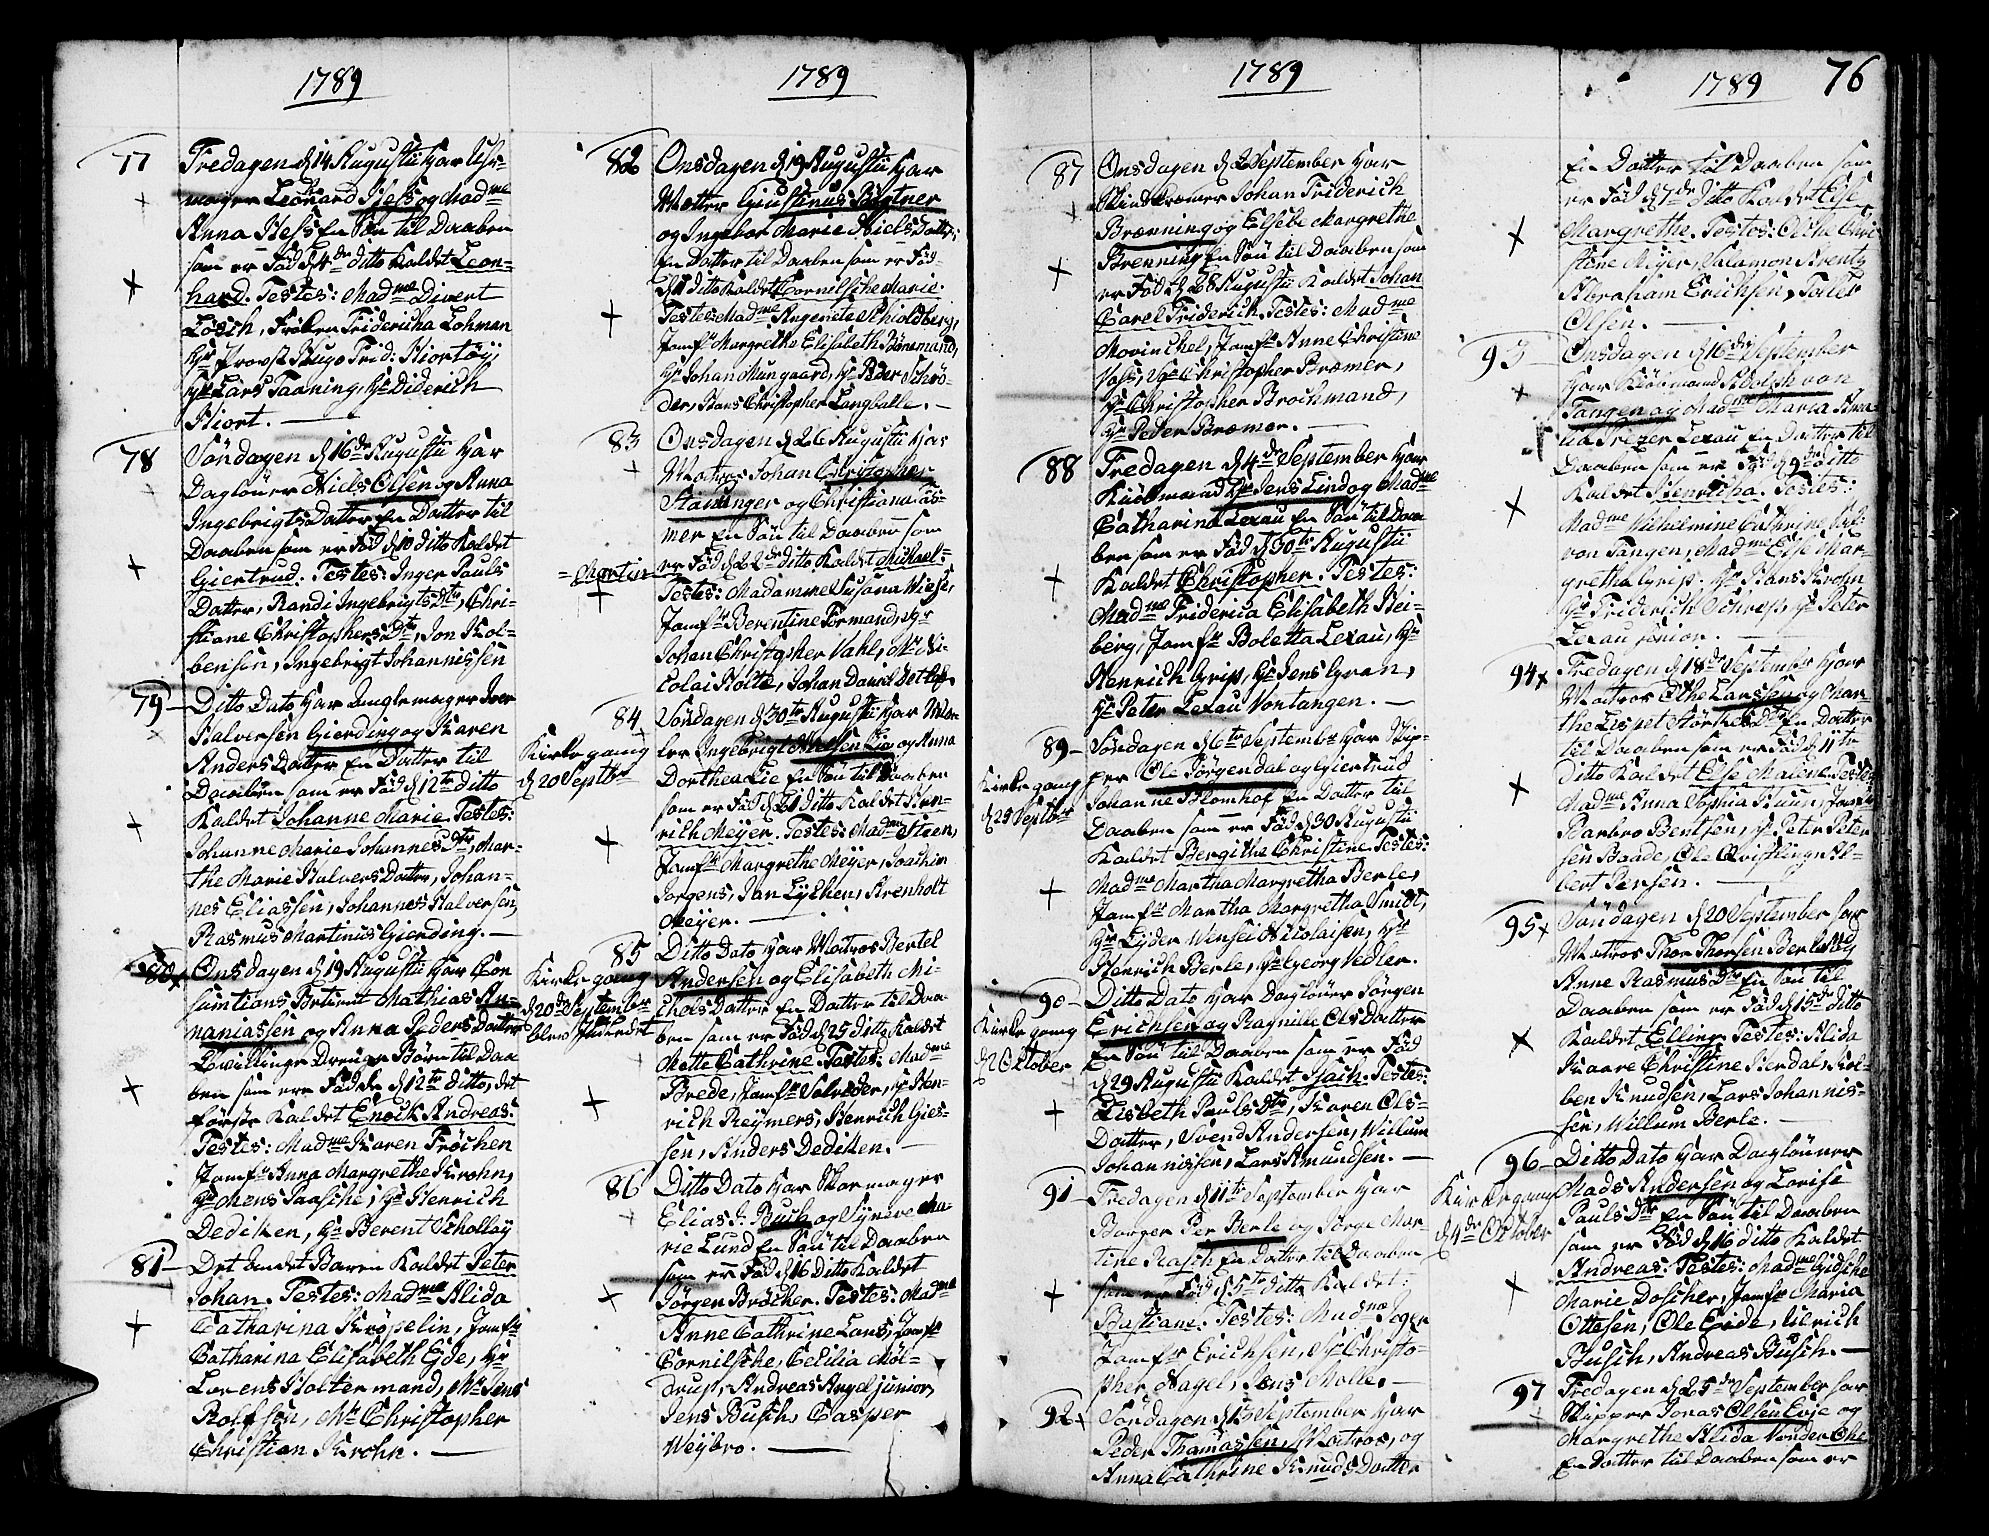 1789
77
Fredagen d 14 Augustii har Uhr-
mager Leonard Hess og Madme
Anna Hess En Sön til Daaben
som er Föd d 4de ditto Kaldet Leon-
hard. Testes: Madme Divert
Losch, Fröken Fridericha Lohman
Hr Provst Hugo Frid: Hiortöÿ,
Hr Lars Taaning, Hr Diderich
Hiort.
78
Söndagen d 16de Augustii har
Daglöner Niels Olsen og Anna
Ingebrigts Datter En Datter til
Daaben som er Föd d 10 ditto Kaldet
Giertrud. Testes: Inger Pauls
Datter, Randi Ingebrigts dtr, Chri-
stiane Christophers Dtr, Jon Kol-
bensen, Ingebrigt Johannissen
79
Ditto Dato har Junglemager Iver
Halversen Gierding og Karen
Anders Datter En Datter til
Daaben som er Föd d 12te ditto
Kaldet Johanne Marie. Testes:
Johanne Marie Johannes dtr, Mar-
the Marie Halvers Datter, Johan-
nes Eliassen, Johannes Halversen,
Rasmus Martinus Gierding.
80
Onsdagen d 19 Augustii har Con
sumtions Betient Mathias An-
naniassen og Anna Peders Datter
Tvillinge Drenge Börn til Daa
ben som ere Födde d 12te ditto, det
förste Kaldet Enock Andreas:
Testes: Madme Karen Fröchen
Jomfr Anna Margrethe Krohn,
Hr Mens Paasche, Hr Henrich
Dediken, Hr Berent Schollaÿ
81
Det andet Baren Kaldet Peter
Johan. Testes: Madme Alida
Catharina Kröpelin, Jomfr
Catharina Elisabeth Eÿde, Hr
Lorens Holtermand, Mr Jens
Rolfsen, Mr Christopher
Christian Krohn.
1789
82
Onsdagen d 19 Augustii har
Matter Giustinus Bÿtner
og Ingebor Marie Niels Datter,
En Datter til Daaben som er Föd
d 11 ditto Kaldet Cornilsche Marie.
Testes: Madme Angeneta Schioldberg,
Jomfr Margrethe Elisabeth Bönsmand,
Hr Johan Mungaard, Hr Peder Schrö-
der, Hans Christopher Langballe.
83
Onsdagen d 26 Augustii har
Matros Johan Christopher
Stavanger og Christiana Tas-
mer En Sön til Daaben som
er Föd d 22de ditto Kaldet Michael-
=Martin
Testes: Madamme Susana Wiese,
Jomfr Berentine Formand, Hr
Johan Christopher Vahl, Mr Ni-
colai Holte, Johan David Detlef.
84
Söndagen d 30te Augustii har Møl-
ler Ingebrigt Nielsen Lie og Anna
Dorthea Lie En Sön til Daaben
som er Föd d 21 ditto Kaldet Hen-
rich Meÿer. Testes: Madme Steen,
Jomfr Margrethe Meÿer, Joachim
Jorgens, Jan Lÿchen, Arenholt
Meÿer.
Kirke gang
d 20 Septbr
85
Ditto Dato har Matros Bertel
Andersen og Elisabeth Mi-
chels Datter En Datter til Daa
ben som er Föd d 25 ditto Kaldet
Mette Cathrine. Testes: Madme
Brede, Jomfr Salveder, Hr Hen-
rich Reÿmers, Henrich Gies-
sen, Anders Dediken.
Kirke gang
d 20de September
blev Juleedet
86
Ditto Dato har Skomager
Elias J: Buch og Sÿneve Ma-
rie Lund En Sön til Daaben
som er Föd d 16 Ditto Kaldet
Jörgen Bröcher. Testes: Madme
Anne Cathrine Lans, Jomfr
Cornilsche, Cecilia Möl-
drup, Andreas Angel junior,
Jens Busch, Casper
Weÿbro.
1789
87
Onsdagen d 2 September har
Skindkræmer Johan Friderich
Brenning og Elsebe Margrethe
Brenning En Sön til Daaben som
er Föd d 28 Augustii Kaldet Johan
Carel Friderich. Testes: Madme
Movinchel, Jomfr Anne Christine
Voss, Hr Christopher Bræmer,
Hr Christopher Brochmand,
Hr Peder Bræmer.
88
Fredagen d 4de September har
Kiöbmand Hr Jens Lind og Madme
Catharina Lexau En Sön til Daa
ben som er Föd d 30te Augustii
Kaldet Christopher. Testes:
Madme Fridericа Elisabeth Rei-
berg, Jomfr Boletta Lexau, Hr
Henrich Grip, Hr Jens Gran,
Hr Peter Lexau Vontangen.
89
Söndagen d 6te September har Skip-
per Ole Jörgendal og Giertrud
Johanne Blomhof En Datter til
Daaben som er Föd d 30 Augustii
Kaldet Bergithe Christine. Testes:
Madme Martha Margretha Berle,
Jomfr Martha Margretha Smidt,
Hr Lÿder Wensei Nicolaisen, Hr
Henrich Berle, Hr Georg Vedler.
Kirke gang
d 29 Septbr
90
Ditto Dato har Daglöner Jörgen
Erichsen og Ragnille Ols Datter
En Sön til Daaben som er Föd
d 29 Augustii Kaldet Isach. Testes:
Lisbeth Pauls Dtr, Karen Ols-
Datter, Svend Andersen, Willum
Johannissen, Lars Amundsen.
Kirke gang
d 2 October
91
Fredagen d 11te September har
Borger Per Berle og Inge Mar-
tine Rasch En Datter til Daaben
som er Föd d 5te ditto Kaldet:
Bastiane. Testes: Madme Jeger
Jomfr Erichsen, Hr Christo-
pher Nagel, Jens Molle.
92
Söndagen d 13 September har
Peder Thomassen, Matros, og
Anna Cathrine Knuds Datter
1789
76
En Datter til Daaben som
er Föd d 7de ditto Kaldet Else
Margrethe. Testes: Olche Chri
stine Meÿer, Salamon Krentz
Abraham Erichsen, Tollef
Olsen.
93
Onsdagen d 16de September
har Kiöbmand Adolph von
Tangen og Madme Maria Ama-
lia Frezer Lexau En Datter til
Daaben som er Föd d 9de ditto
Kaldet Henricha. Testes:
Madme Vilhelmine Cathrine Kal-
von Tangen, Madme Else Mar-
gretha Grip. Hr Hans Krohn
Hr Friderich Schrep, Hr Peter
Lexau junior.
94
Fredagen d 18de September har
Matros Olhe Larssen og Mar-
the Lispet Störkers dtr En Datter
til Daaben som er Föd d 11te
Ditto Kaldet Else Malene. Testes
Madme Anna Sophia Kuun, Jomfr
Barbro Bentsen, Hr Peter Peter
sen Baade, Ole Qvistling, Al-
bert Pensen.
95
Söndagen d 20 September har
Matros Thor Thorsen Berle og
Anne Rasmus Dtr En Sön til
Daaben som er Föd d 15de ditto
Kaldet Elling. Testes: Alida
Kaare Christine Herdal, Kol-
ben Knudsen, Lars Johannis-
sen, Willum Berle.
96
Ditto Dato har Daglönner
Mads Andersen og Lovise
Pauls Dtr En Sön til Daaben
som er Föd d 16 ditto Kaldet
Andreas: Testes: Madme Gidsche
Marie Doscher, Jomfr Maria
Ottesen, Ole Eide, Ulrich
Busch, Andreas Busch.
Kirke gang
d 4de October
97
Fredagen d 25de September har
Skipper Jonas Olsen Eÿe og
Margrethe Alida Vonder Ohe
En Datter til Daaben som er